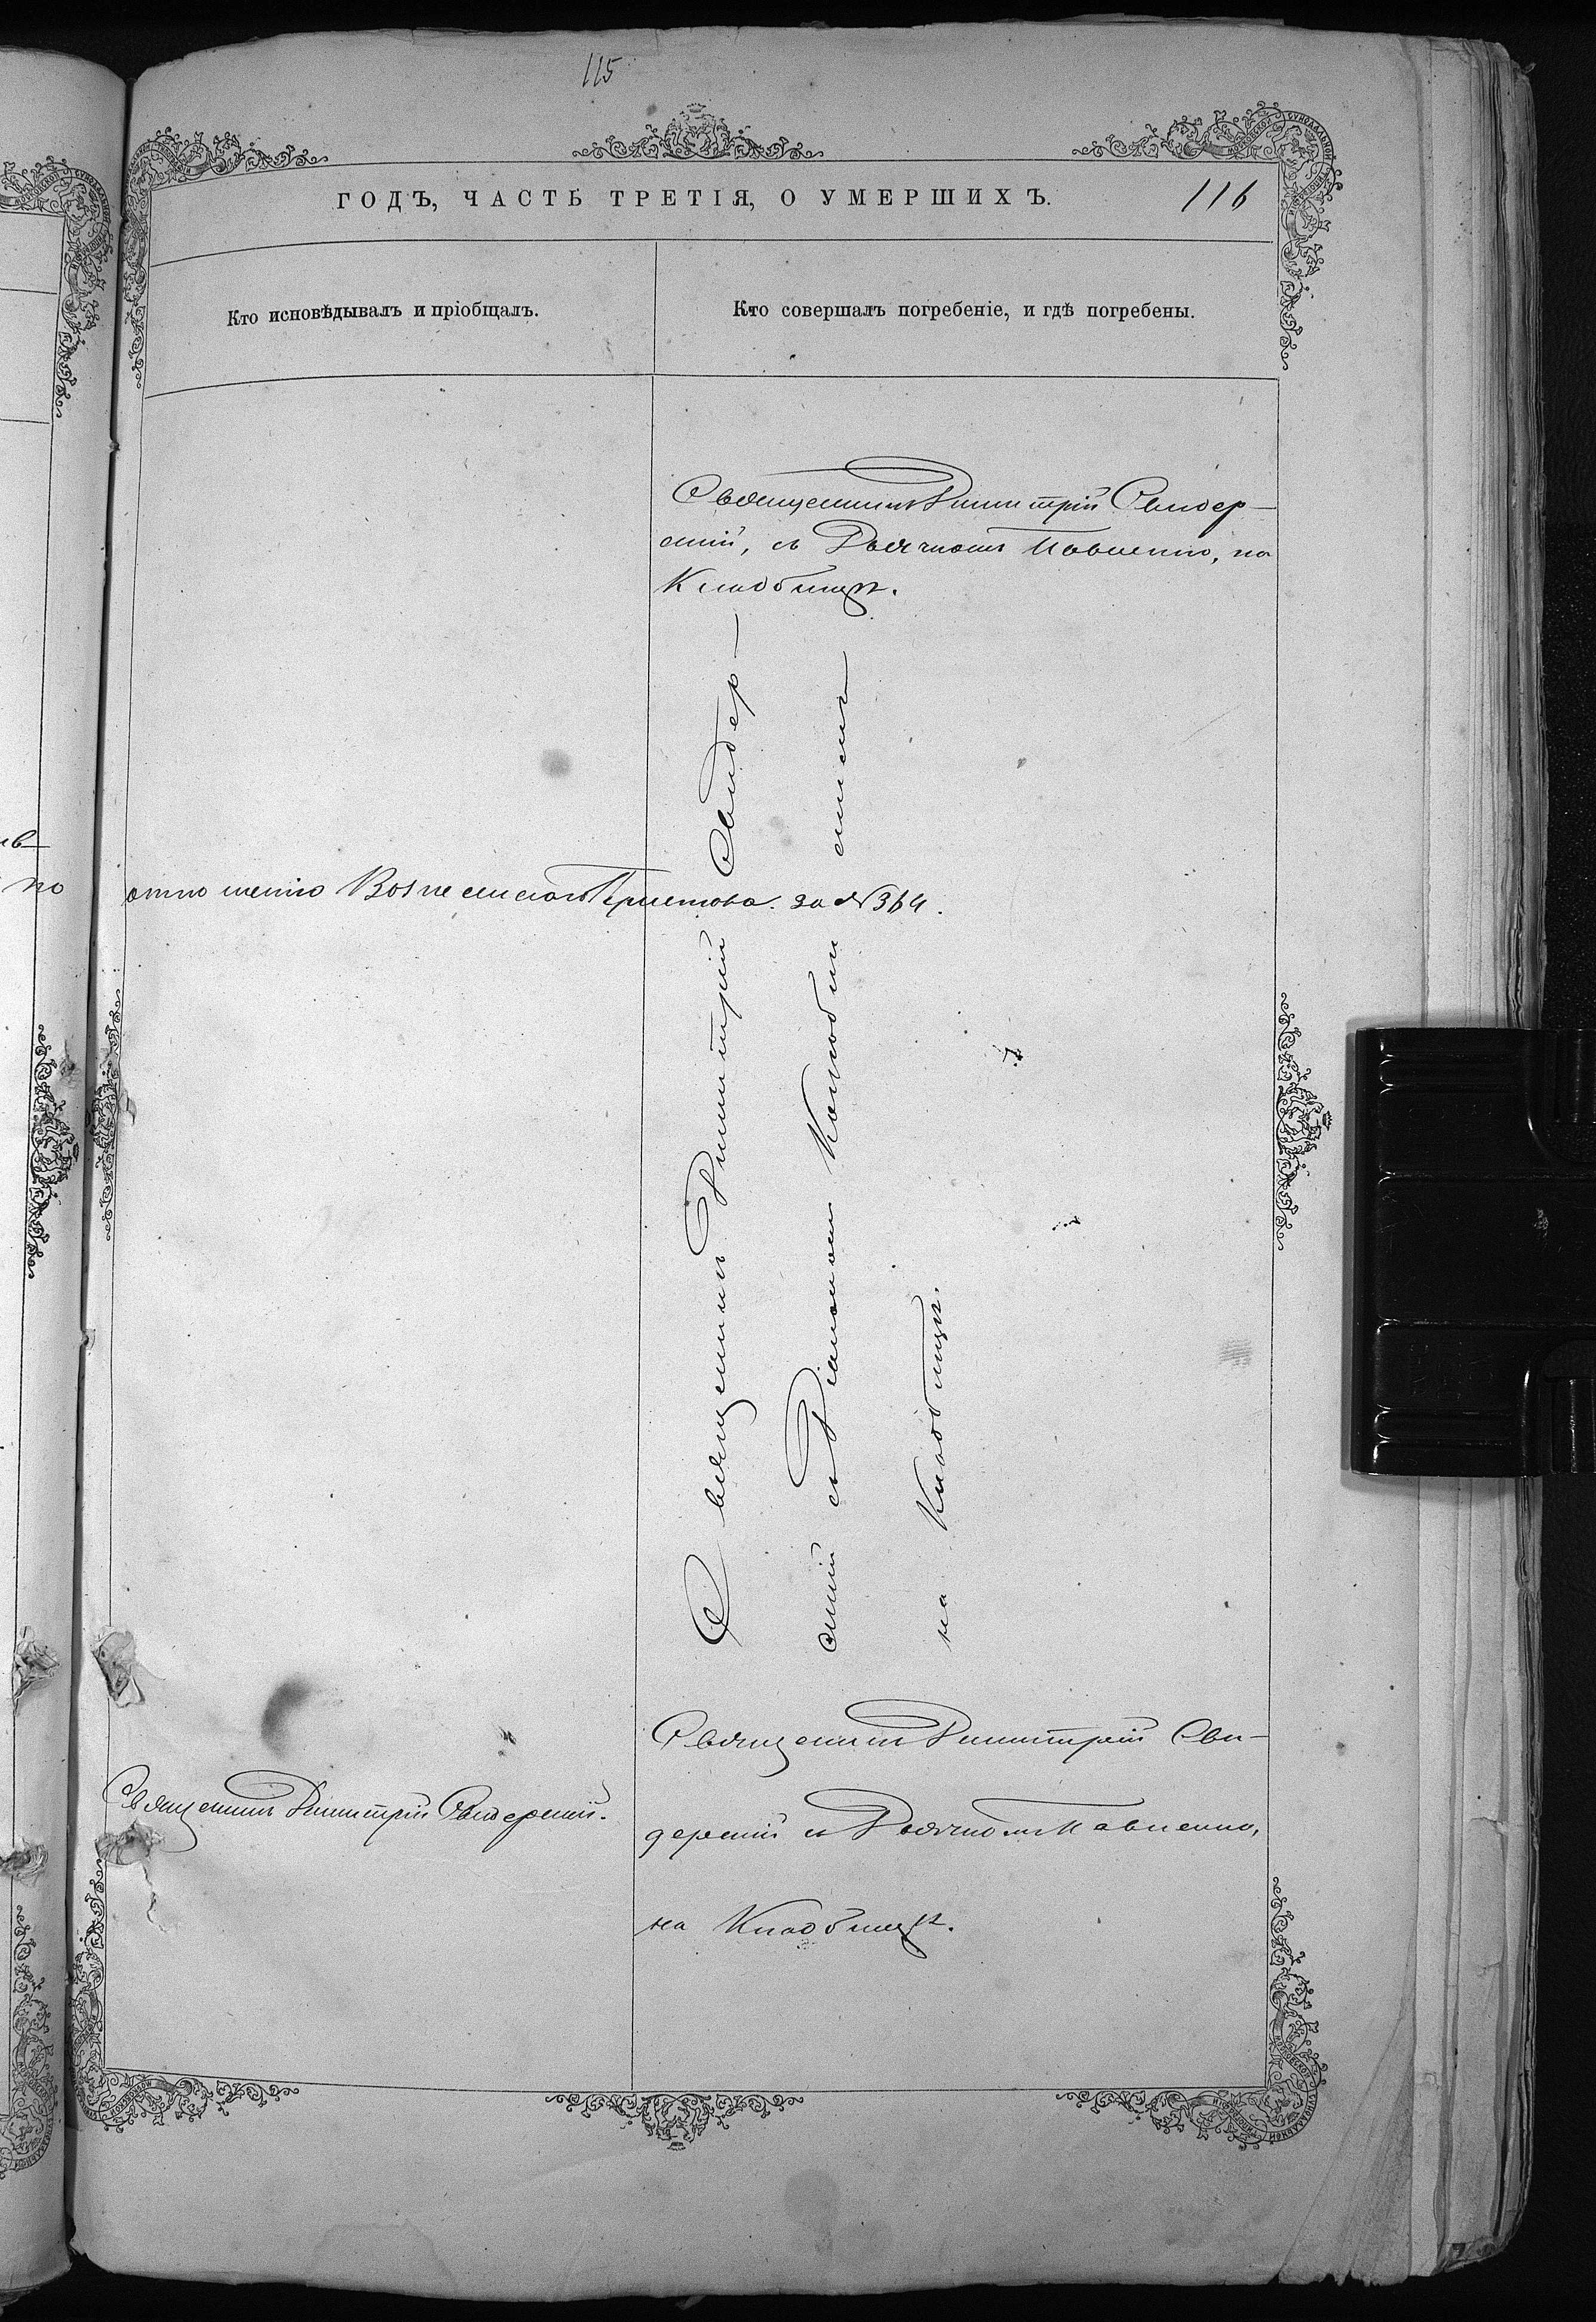 115
ГОДЪ, ЧАСТЬ ТРЕТІЯ, О УМЕРШИХЪ.
116
Кто исповѣдывалъ и пріобщалъ.
Кто совершалъ погребеніе, и гдѣ погребены.
Священникъ Димитрій Свидер-
скій, съ Дьячкомъ Павленко, на
Кладбищѣ.
отношенію Вознесенскаго Пристава. за № 364.
Священникъ Димитрій Свидер-
скій съ Діакономъ
на Кладбищѣ.
Священникъ Димитрій Свидерскій.
Священникъ Димитрій Сви-
дерскій съ Дьячкомъ Павленко,
на Кладбищѣ.